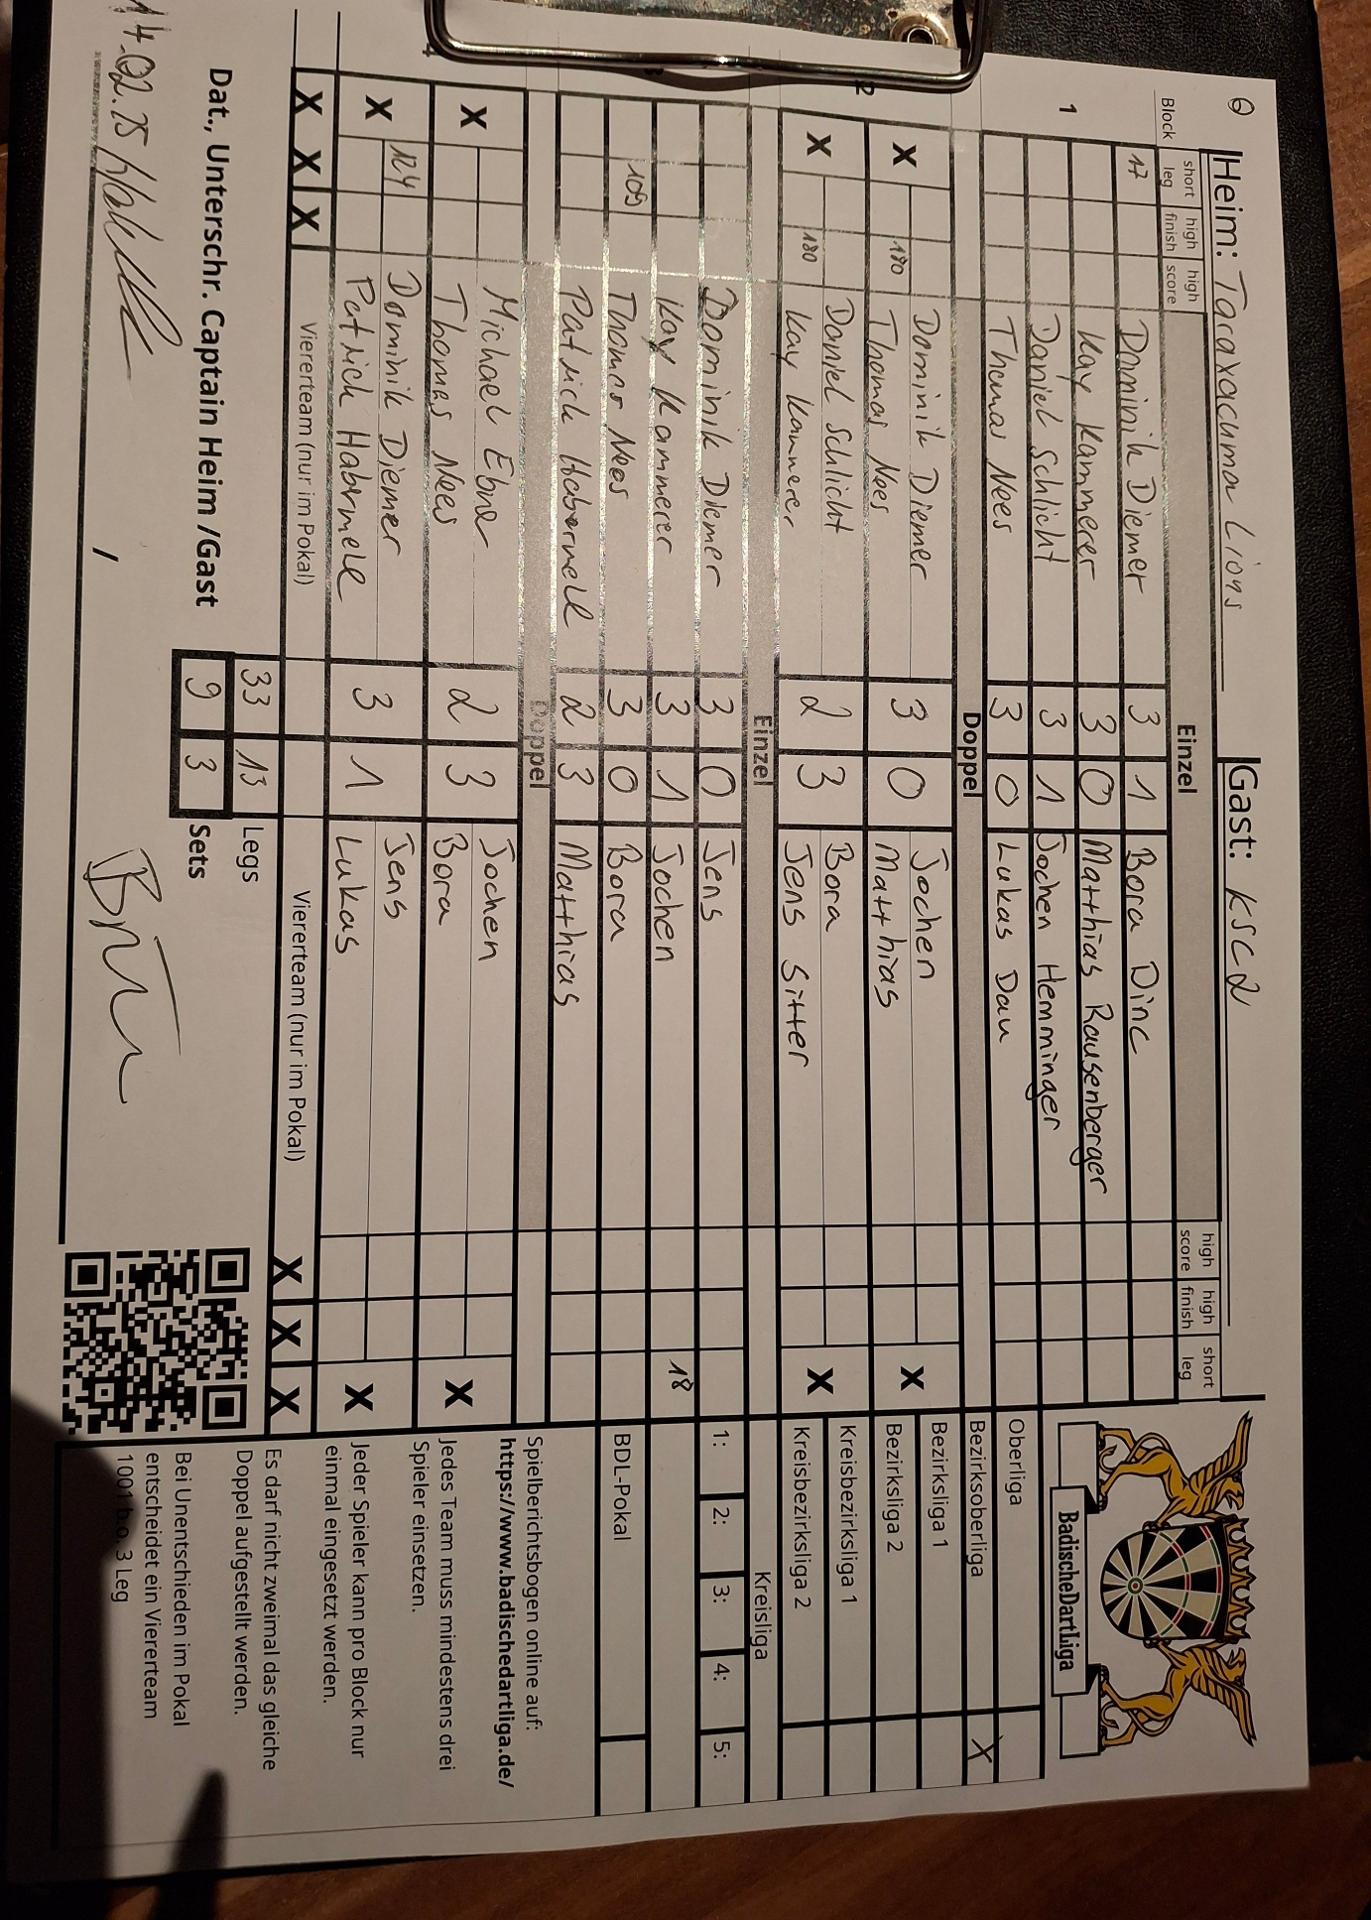 6) Heim: Taraxachma Lions Gast: KSC 2
Block short leg high finish high score Einzel high score high finish short leg
17 Dominik Diemer 3 1 Bora Dinc
Kay Kammerer 3 0 Matthias Rausenberger
1 Daniel Schlicht 3 1 Jochen Hemminger
Thomas Nees 3 0 Lukas Dau
Doppel
Dominik Diemer Jochen
X 180 Thomas Nees 3 0 Matthias X
2 Daniel Schlicht Bora
X 180 Kay Kammerer 2 3 Jens Sitter X
Einzel
Dominik Diemer 3 0 Jens
Kay Kammerer 3 1 Jochen 18
109 Thomas Nees 3 0 Bora
Patrick Habermehl 2 3 Matthias
Doppel
Michael Ebner Jochen
X Thomas Nees 2 3 Bora X
124 Dominik Diemer Jens
X Patrick Habermehl 3 1 Lukas X
X X X Viererteam (nur im Pokal) Viererteam (nur im Pokal) X X X
33 13 Legs
Dat., Unterschr. Captain Heim /Gast 9 3 Sets
14.02.25 ,
BadischeDartLiga
Oberliga
Bezirksoberliga X
Bezirksliga 1
Bezirksliga 2
Kreisbezirksliga 1
Kreisbezirksliga 2
Kreisliga
1: 2: 3: 4: 5:
BDL-Pokal
Spielberichtsbogen online auf:
https://www.badischedartliga.de/
Jedes Team muss mindestens drei
Spieler einsetzen.
Jeder Spieler kann pro Block nur
einmal eingesetzt werden.
Es darf nicht zweimal das gleiche
Doppel aufgestellt werden.
Bei Unentschieden im Pokal
entscheidet ein Viererteam
1001 b.o. 3 Leg